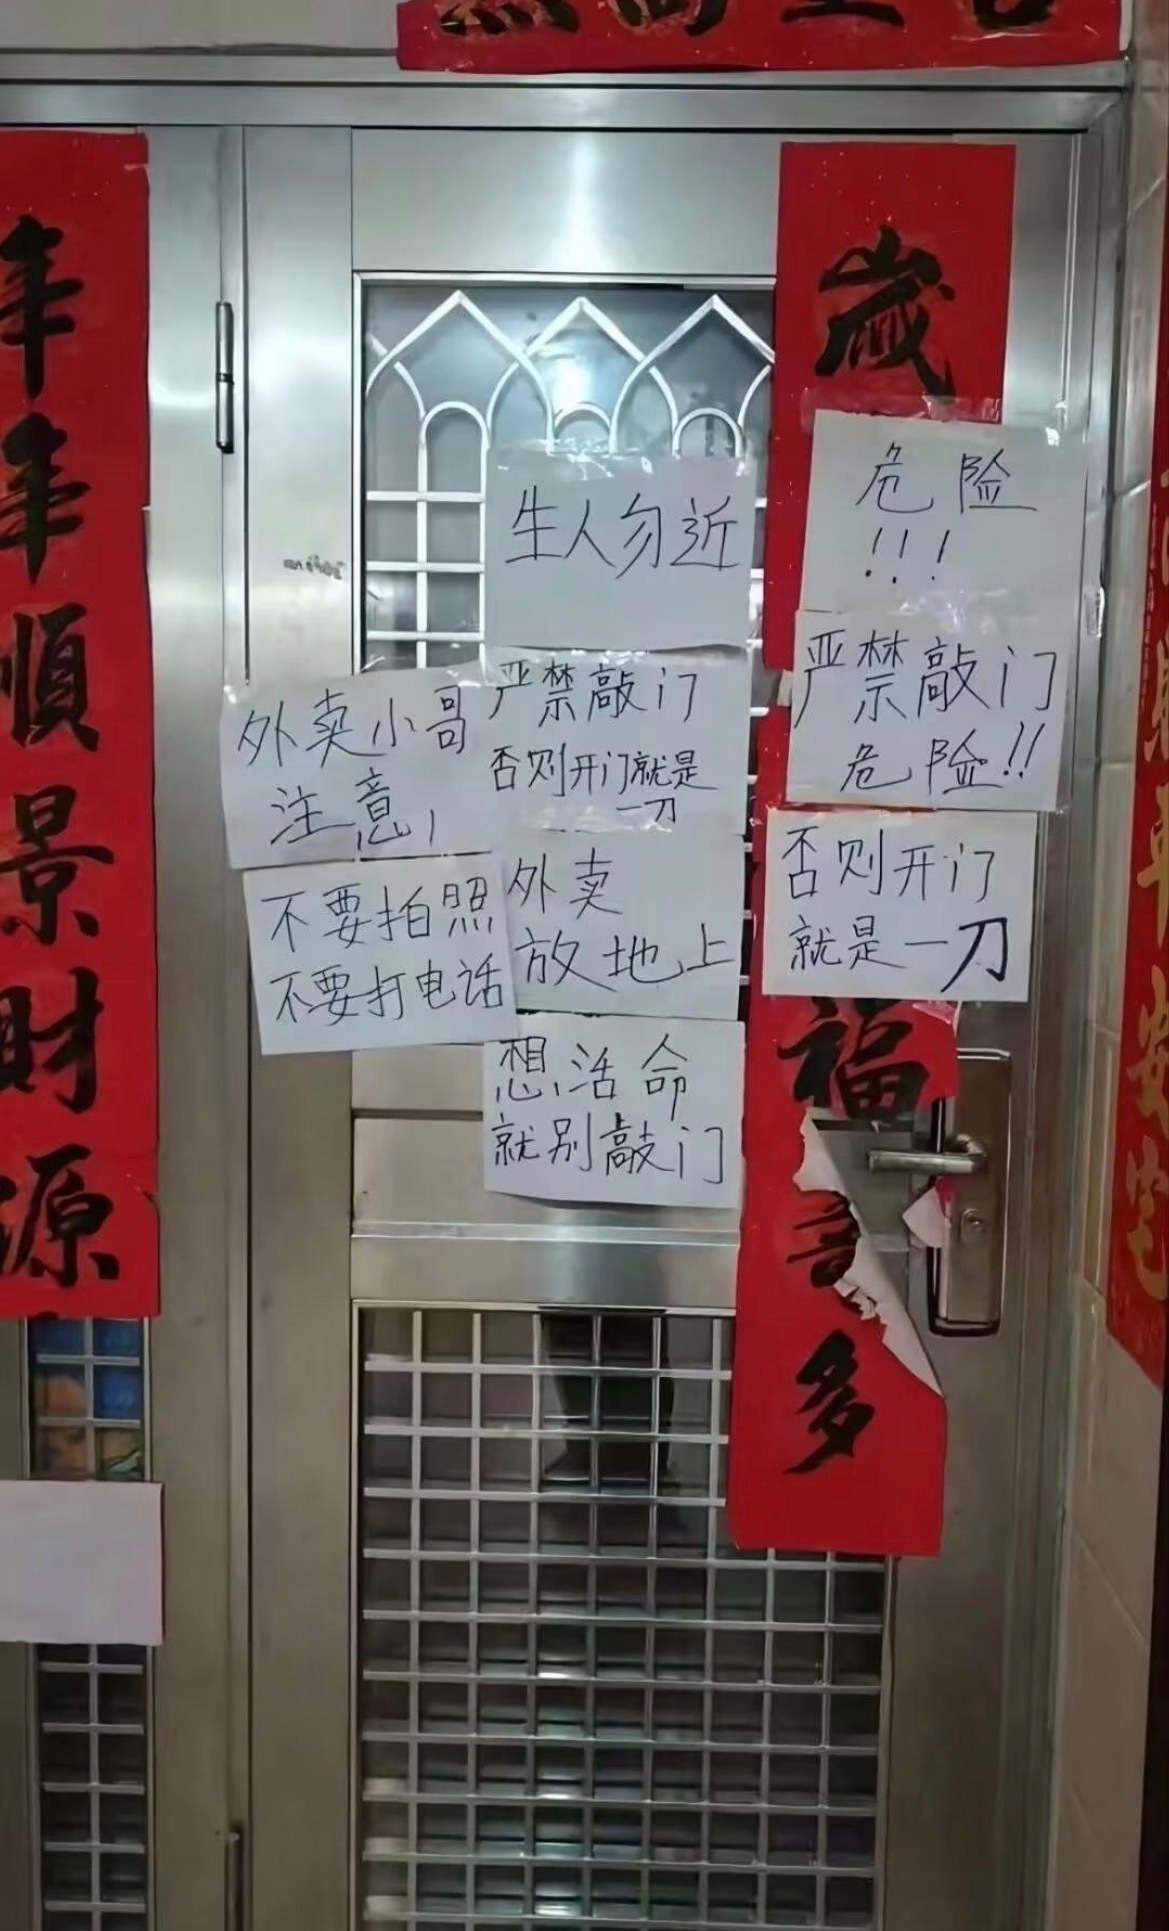 年年順景財源
歲
福
多
生人勿近
危险
!!!
外卖小哥
注意,
严禁敲门
否则开门就是
一刀
严禁敲门
危险!!
不要拍照
不要打电话
外卖
放地上
否则开门
就是一刀
想活命
就别敲门